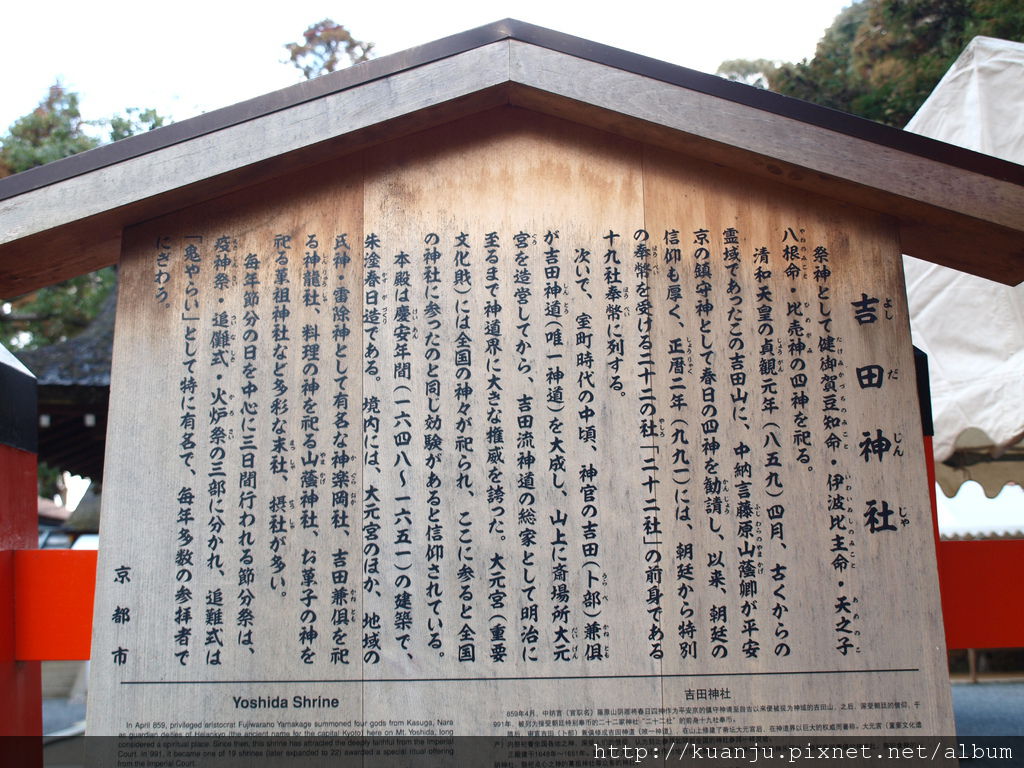 吉田神社
祭神として健御賀豆知命・伊波比主命・天之子
八根命・比売神の四神を祀る。
清和天皇の貞観元年（八五九）四月、古くからの
霊域であったこの吉田山に、中納言藤原山蔭卿が平安
京の鎮守神として春日の四神を勧請し、以来、朝廷の
信仰も厚く、正暦二年（九九一）には、朝廷から特別
の奉幣を受ける二十二の社「二十二社」の前身である
十九社奉幣に列する。
次いで、室町時代の中頃、神官の吉田（卜部）兼倶
が吉田神道（唯一神道）を大成し、山上に斎場所大元
宮を造営してから、吉田流神道の総家として明治に
至るまで神道界に大きな権威を誇った。大元宮（重要
文化財）には全国の神々が祀られ、ここに参ると全国
の神社に参ったのと同じ効験があると信仰されている。
本殿は慶安年間（一六四八〜一六五一）の建築で、
朱塗春日造である。境内には、大元宮のほか、地域の
氏神・雷除神として有名な神楽岡社、吉田兼倶を祀
る神龍社、料理の神を祀る山蔭神社、お菓子の神を
祀る菓祖神社など多彩な末社、摂社が多い。
毎年節分の日を中心に三日間行われる節分祭は、
疫神祭・追儺式・火炉祭の三部に分かれ、追難式は
「鬼やらい」として特に有名で、毎年多数の参拝者で
にぎわう。
京都市
Yoshida Shrine
In April 859, privileged aristocrat Fujiwarano Yamakage summoned four gods from Kasuga, Nara
as guardian deities of Heiankyo (the ancient name for the capital Kyoto) here on Mt. Yoshida, long
considered a spiritual place. Since then, this shrine has attracted the deeply faithful from the Imperial
Court. In 991, it became one of 19 shrines (later expanded to 22) awarded a special ritual offering
from the Imperial Court.
吉田神社
http://kuanju.pixnet.net/album